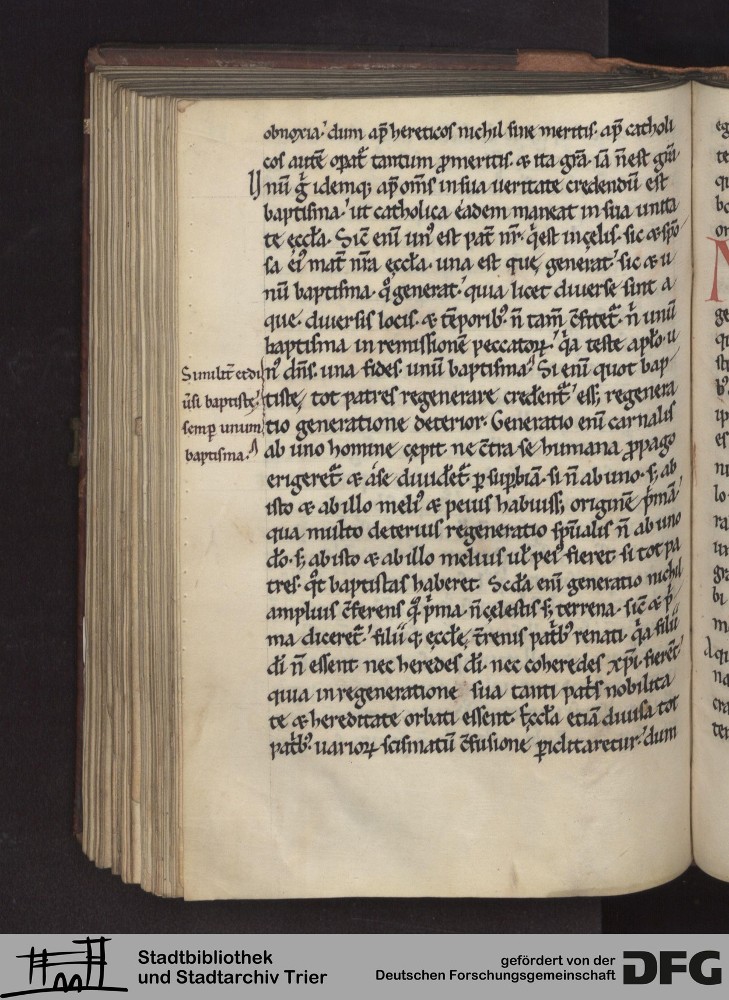 obnoxia. dum ap̄ hereticos nichil sine meritis. ap̄ catholi
cos autē opat̄ tantum ꝓmeritis. & ita gr̄a. iā n̄ est gr̄a.
Unū g̊ idemq; ap̄ om̄s in sua ueritate credendū est
baptisma. ut catholica eadem maneat in sua unita
te eccl̄a. Sic̄ enī un' est pat̄ nr̄. q̇ est in celis. sic & spō
sa ei' mat̄ nr̄a eccl̄a. una est que generat. sic & u
nū baptisma. qd̄ generat. quia licet diuerse sint a
que. diuersis locis. & tēporib'. n̄ tam̄ c̄fitet̄. n̄ unū
baptisma in remissionē peccatoꝝ. q̇a teste apl̄o. u
n' dn̄s. una fides. unū baptisma. Si enī quot bap
tiste, tot patres regenerare credent̄ ess;, regenera
tio generatione deterior. Generatio enī carnalis
ab uno homine cepit ne c̄tra se humana ꝓpago
erigeret̄ & a se diuidet̄ ꝑ supbiā. si n̄ ab uno. s; ab
isto & ab illo meli' & peius habuiss; originē p̄mā.
qua multo deterius regeneratio sp̄ualis n̄ ab uno
dō. s; ab isto & ab illo melius ul̄ pei' fieret si tot pa
tres. qt̄ baptistas haberet. Scd̄a enī generatio nichil
amplius c̄ferens qͣ p̄ma. n̄ celestis s; terrena. sic̄ & p̄
ma diceret̄. filii q; eccl̄e, t̄renis patb' renati. q̇a filii
dī n̄ essent nec heredes dī. nec coheredes xp̄i. fierēt.
quia in regeneratione sua tanti pat̄s nobilita
te & hereditate orbati essent. Eccl̄a etiā diuisa tot
patb'. uarioꝝ scismatū c̄fusione ꝑiclitaretur. dum
Similit̄ & di
uīsi baptiste.
semꝑ unum
baptisma.
Stadtbibliothek
und Stadtarchiv Trier
gefördert von der
Deutschen Forschungsgemeinschaft
DFG